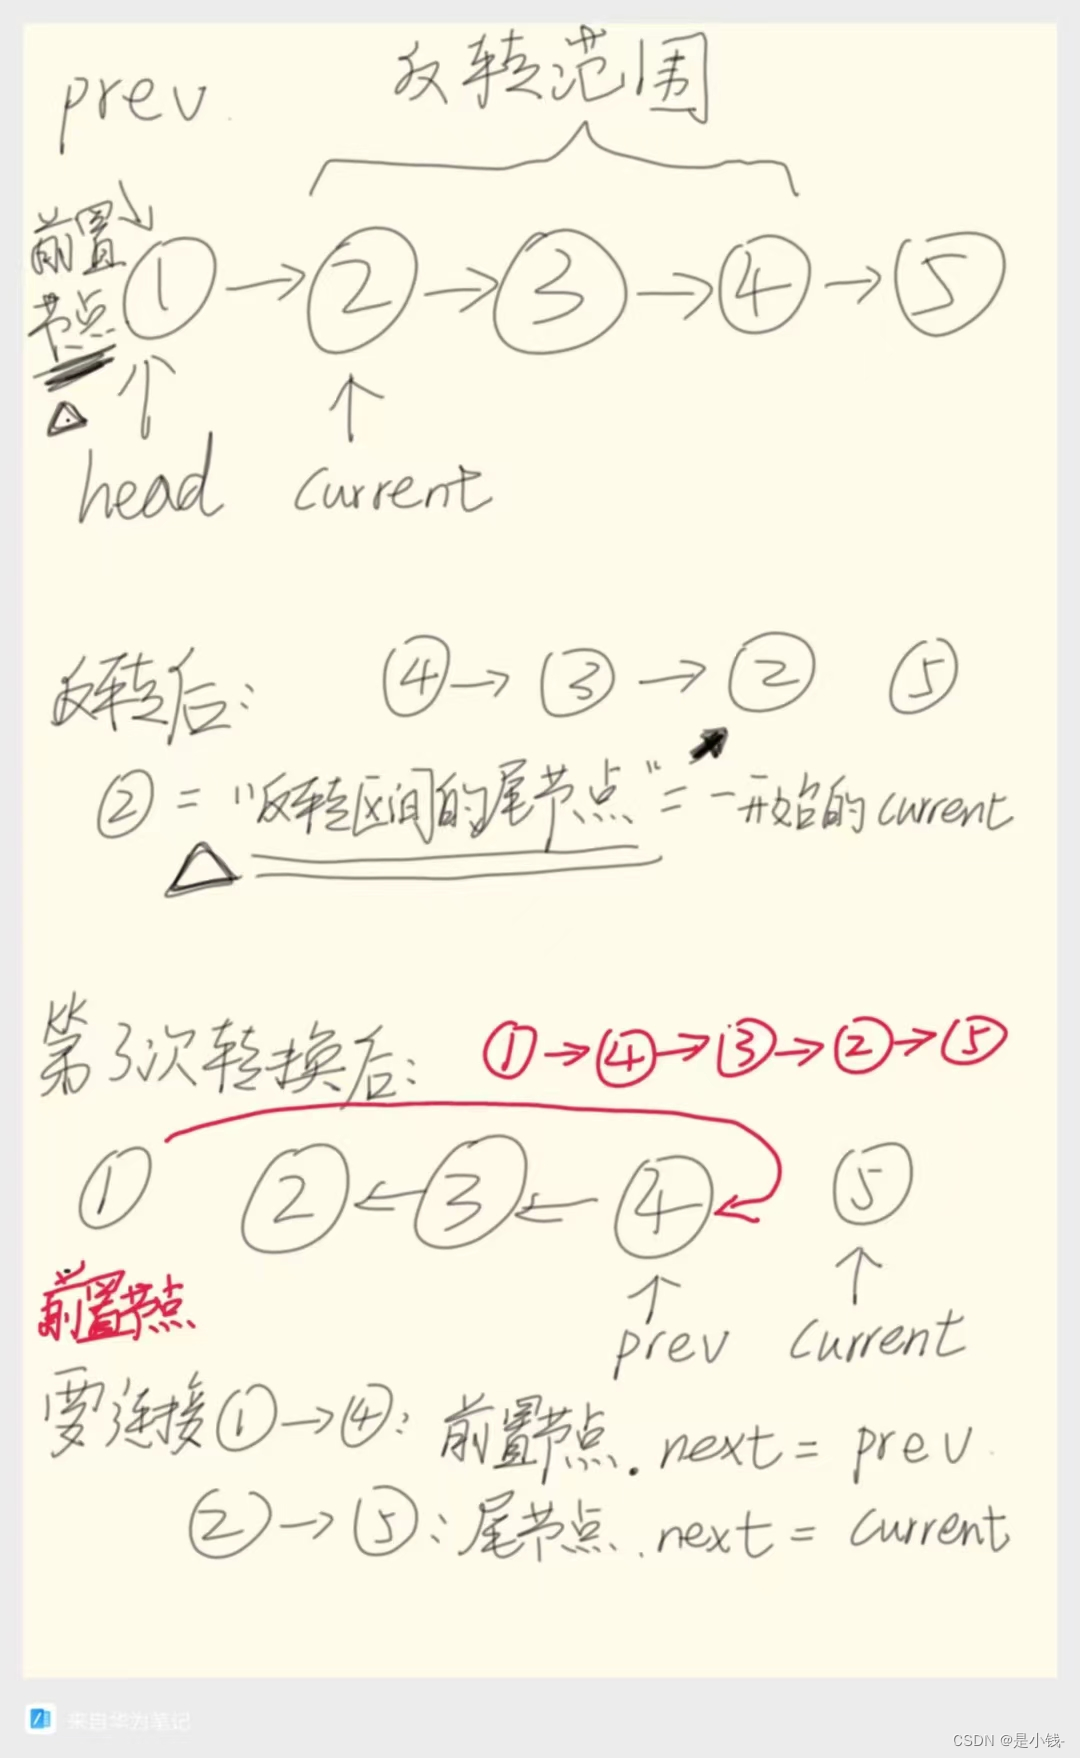 反转范围
prev
前置
节点
① → ② → ③ → ④ → ⑤
head current
反转后: ④ → ③ → ② ⑤
② = "反转区间的尾节点" = 一开始的current
第3次转换后: ① → ④ → ③ → ② → ⑤
① ② ← ③ ← ④ ⑤
前置节点
prev current
要连接① → ④: 前置节点.next = prev
② → ⑤: 尾节点.next = current
来自华为笔记
CSDN @是小钱-